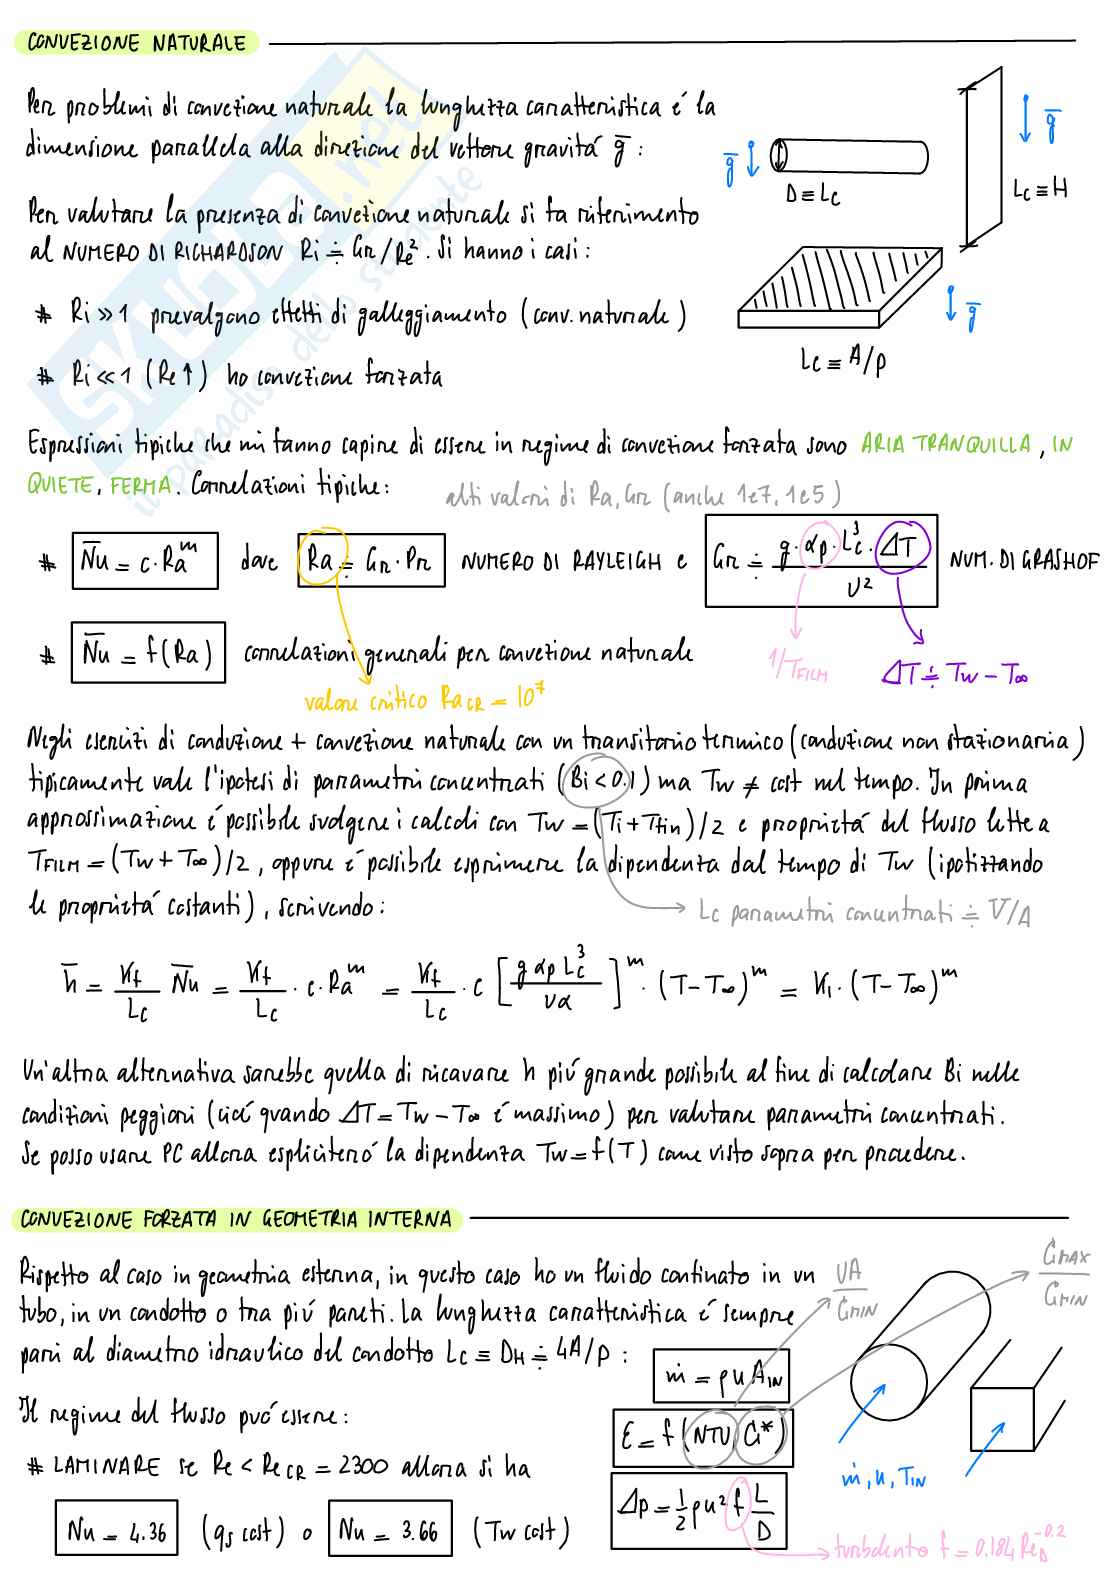 CONVEZIONE NATURALE
Per problemi di convezione naturale la lunghezza caratteristica é la
dimensione parallela alla direzione del vettore gravitá g̅ :
g̅
D ≡ Lc
g̅
Lc ≡ H
Per valutare la presenza di convezione naturale si fa riferimento
al NUMERO DI RICHARDSON Ri ≐ Gr/Re². Si hanno i casi:
# Ri ≫ 1 prevalgono effetti di galleggiamento (conv. naturale)
g̅
# Ri ≪ 1 (Re↑) ho convezione forzata
Lc ≡ A/p
Espressioni tipiche che mi fanno capire di essere in regime di convezione forzata sono ARIA TRANQUILLA, IN
QUIETE, FERMA. Correlazioni tipiche:
alti valori di Ra, Gr (anche 1e7, 1e5)
# N̅u = c·Ra^m dove Ra ≐ Gr·Pr NUMERO DI RAYLEIGH e Gr ≐ g·αp·Lc³·ΔT / ν² NUM. DI GRASHOF
# N̅u = f(Ra) correlazioni generali per convezione naturale
1/TFILM
ΔT ≐ Tw − T∞
valore critico RaCR = 10⁷
Negli esercizi di conduzione + convezione naturale con un transitorio termico (conduzione non stazionaria)
tipicamente vale l'ipotesi di parametri concentrati (Bi < 0.1) ma Tw ≠ cost nel tempo. In prima
approssimazione é possibile svolgere i calcoli con Tw = (Ti + Tfin)/2 e proprietá del flusso lette a
TFILM = (Tw + T∞)/2, oppure é possibile esprimere la dipendenza dal tempo di Tw (ipotizzando
le proprietá costanti), scrivendo:
Lc parametri concentrati ≐ V/A
h̅ = Kf/Lc N̅u = Kf/Lc · c·Ra^m = Kf/Lc · c [g αp Lc³ / να]^m · (T − T∞)^m = K₁·(T − T∞)^m
Un'altra alternativa sarebbe quella di ricavare h piú grande possibile al fine di calcolare Bi nelle
condizioni peggiori (cioé quando ΔT = Tw − T∞ é massimo) per valutare parametri concentrati.
Se posso usare PC allora espliciteró la dipendenza Tw = f(T) come visto sopra per procedere.
CONVEZIONE FORZATA IN GEOMETRIA INTERNA
Rispetto al caso in geometria esterna, in questo caso ho un fluido confinato in un
tubo, in un condotto o tra piú pareti. La lunghezza caratteristica é sempre
pari al diametro idraulico del condotto Lc ≡ DH ≐ 4A/p :
UA/ĊMIN
ĊMAX/ĊMIN
ṁ = ρ u AIN
Il regime del flusso puó essere:
ε = f(NTU, Ċ*)
# LAMINARE se Re < ReCR = 2300 allora si ha
ṁ, u, TIN
Δp = 1/2 ρu² f L/D
Nu = 4.36 (qs cost) o Nu = 3.66 (Tw cost)
turbolento f = 0.184 ReD^−0.2
SKUOLA.net
il paradiso dello studente